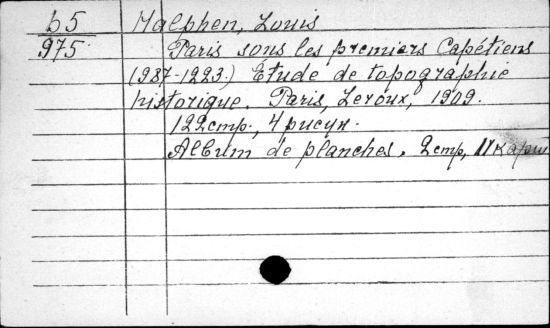 b5
975
Malphen, Louis
Paris sous les premiers Capétiens
(987-1223.) Étude de topographie
historique. Paris, Leroux, 1909.
122 стр., 4 рисун.
Album de planches. 2 стр, 11 карт